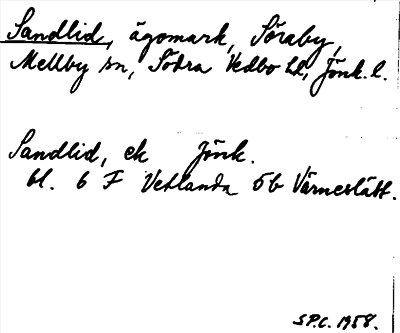 Sandlid, ägomark, Söraby,
Mellby sn, Södra Vedbo hd, Jönk. l.
Sandlid, ek Jönk.
bl. 6 F Vetlanda 5b Värneslätt.
S.P.C. 1958.